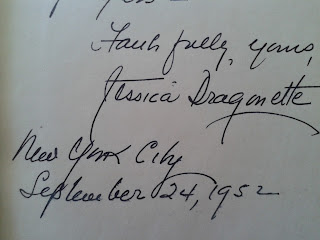 Faithfully, yours,
Jessica Dragonette
New York City
September 24, 1952